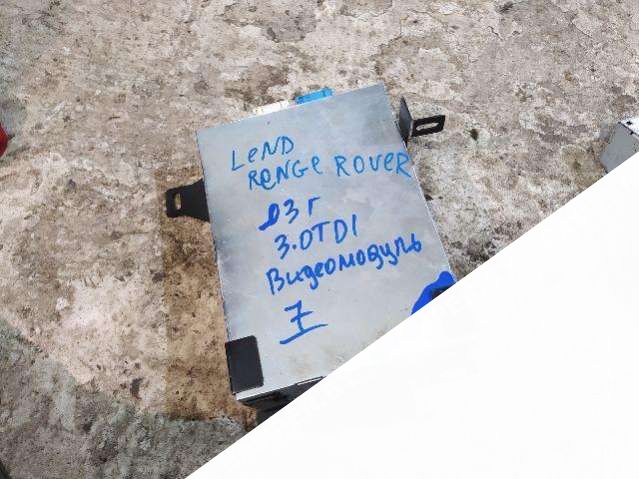 LEND
RENGE ROVER
03 г
3.0TDI
Видеомодуль
7